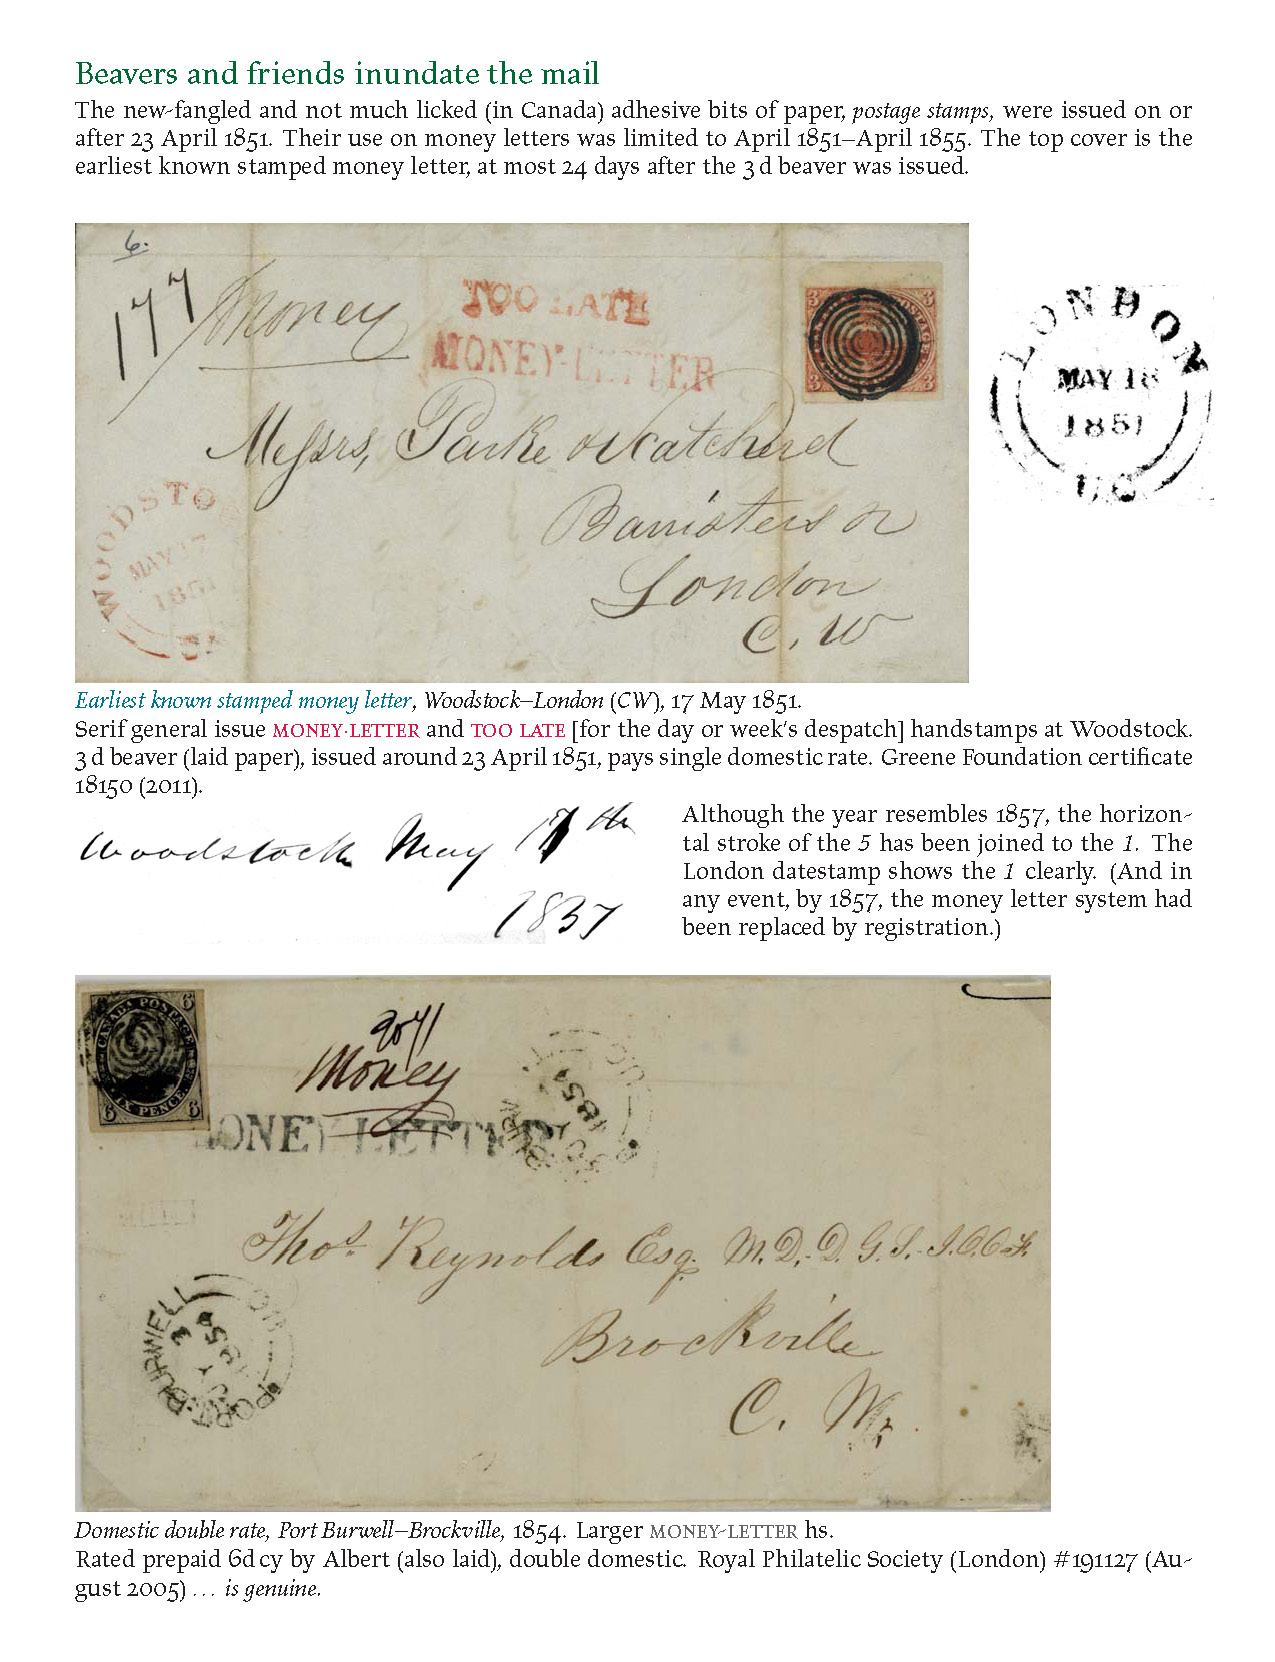 Beavers and friends inundate the mail
The new-fangled and not much licked (in Canada) adhesive bits of paper, postage stamps, were issued on or
after 23 April 1851. Their use on money letters was limited to April 1851–April 1855. The top cover is the
earliest known stamped money letter, at most 24 days after the 3 d beaver was issued.
6.
177
Money
TOO LATE
MONEY-LETTER
3 3
3 3
LONDON
MAY 18
1851
UC
Messrs, Parke & Scatcherd
Barristers &c
London
C. W
WOODSTO
MAY 17
1851
Earliest known stamped money letter, Woodstock–London (CW), 17 May 1851.
Serif general issue MONEY·LETTER and TOO LATE [for the day or week's despatch] handstamps at Woodstock.
3 d beaver (laid paper), issued around 23 April 1851, pays single domestic rate. Greene Foundation certificate
18150 (2011).
Woodstock May 17th
1837
Although the year resembles 1857, the horizon-
tal stroke of the 5 has been joined to the 1. The
London datestamp shows the 1 clearly. (And in
any event, by 1857, the money letter system had
been replaced by registration.)
6 CANADA POSTAGE 6
6 SIX PENCE 6
Money
MONEY-LETTER
1854
Thos. Reynolds Esq. M.D.
Brockville
C. W.
PORT BURWELL
JY 3
1854
UC
Domestic double rate, Port Burwell–Brockville, 1854. Larger MONEY-LETTER hs.
Rated prepaid 6d cy by Albert (also laid), double domestic. Royal Philatelic Society (London) #191127 (Au-
gust 2005) . . . is genuine.